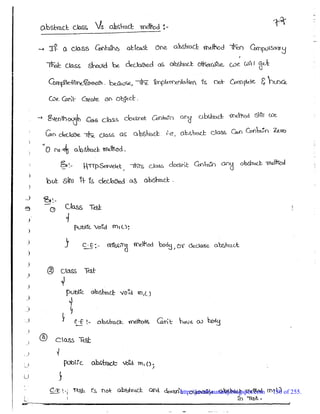 abstract class Vs abstract method :-
→ If a class Contains atleast one abstract method then Compulsory
that class should be declared as abstract otherwise we will get
CompileTimeError. because, the implementation is not Complete & hence
we Can't Create an object.
→ Eventhough class doesnot Contain any abstract method still we
Can declare the class as abstract i.e, abstract class Can Contain Zero
no. of abstract method.
Ex:- HttpServlet, this class doesn't Contain any abstract method
but still it is declared as abstract.
Ex:-
① class Test
{
public void m1();
} C.E:- missing method body, or declare abstract
② class Test
{
public abstract void m1()
{
}
} C.E :- abstract methods Can't have a body
③ class Test
{
public abstract void m1();
}
C.E :- Test is not abstract and doesn't override abstract method m1()
in Test.
of 255.